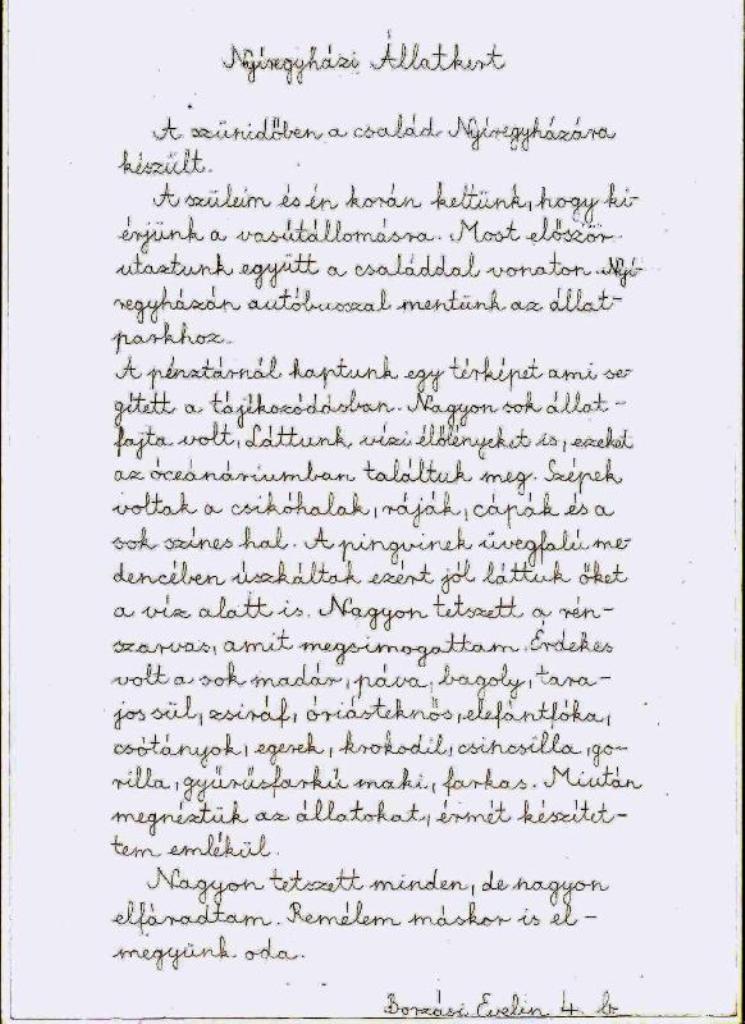 Nyíregyházi Állatkert
A szünidőben a család Nyíregyházára
készült.
A szüleim és én korán keltünk, hogy ki-
érjünk a vasútállomásra. Most először
utaztunk együtt a családdal vonaton. Nyí-
regyházán autóbusszal mentünk az állat-
parkhoz.
A pénztárnál kaptunk egy térképet ami se-
gített a tájékozódásban. Nagyon sok állat-
fajta volt, Láttunk vízi élőlényeket is, ezeket
az óceánáriumban találtuk meg. Szépek
voltak a csikóhalak, ráják, cápák és a
sok színes hal. A pingvinek üvegfalú me-
dencében úszkáltak ezért jól láttuk őket
a víz alatt is. Nagyon tetszett a rén-
szarvas, amit megsimogattam. Érdekes
volt a sok madár, páva, bagoly, tara-
jos sül, zsiráf, óriásteknős, elefántfóka,
csótányok, egerek, krokodil, csincsilla, go-
rilla, gyűrűsfarkú maki, farkas. Miután
megnéztük az állatokat, érmét készítet-
tem emlékül.
Nagyon tetszett minden, de nagyon
elfáradtam. Remélem máskor is el-
megyünk oda.
Borzási Evelin 4. b